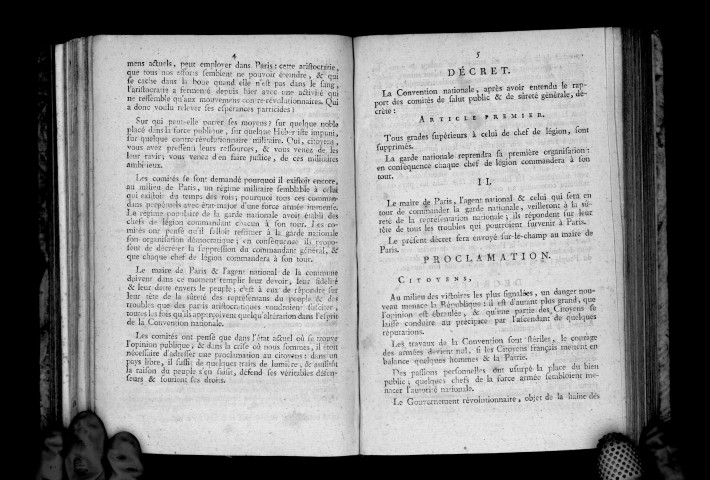 4
mens actuels, peut employer dans Paris : cette aristocratie,
que tous nos efforts semblent ne pouvoir éteindre, & qui
se cache dans la boue quand elle n'est pas dans le sang,
l'aristocratie a fermenté depuis hier avec une activité qui
ne ressemble qu'aux mouvemens contre-révolutionnaires. Qui
a donc voulu relever ses espérances parricides ?
Sur qui peut-elle porter ses moyens ? sur quelque noble
placé dans la force publique, sur quelque Hébert resté impuni,
sur quelque contre-révolutionnaire militaire. Oui, citoyens,
vous avez pressenti leurs ressources, & vous venez de les
leur ravir ; vous venez d'en faire justice, de ces militaires
ambitieux.
Les comités se sont demandé pourquoi il existoit encore,
au milieu de Paris, un régime militaire semblable à celui
qui existoit du temps des rois ; pourquoi tous ces comman-
dans perpétuels avec état-major d'une force armée immense.
Le régime populaire de la garde nationale avoit établi des
chefs de légion commandant chacun à son tour. Les co-
mités ont pensé qu'il falloit restituer à la garde nationale
son organisation démocratique ; en conséquence ils propo-
sent de décréter la suppression du commandant général, &
que chaque chef de légion commandera à son tour.
Le maire de Paris & l'agent national de la commune
doivent dans ce moment remplir leur devoir, leur fidélité
& leur dette envers le peuple ; c'est à eux de répondre sur
leur tête de la sûreté des représentans du peuple & des
troubles que des partis aristocratiques voudroient susciter,
toutes les fois qu'ils apperçoivent quelqu'altération dans l'esprit
de la Convention nationale.
Les comités ont pensé que dans l'état actuel où se trouve
l'opinion publique, & dans la crise où nous sommes, il étoit
nécessaire d'adresser une proclamation au citoyens : dans un
pays libre, il suffit de quelques traits de lumière, & aussitôt
la raison du peuple s'en saisit, défend ses véritables défen-
seurs & soutient ses droits.
5
DÉCRET.
La Convention nationale, après avoir entendu le rap-
port des comités de salut public & de sûreté générale, dé-
crète :
ARTICLE PREMIER.
Tous grades supérieurs à celui de chef de légion, sont
supprimés.
La garde nationale reprendra sa première organisation :
en conséquence chaque chef de légion commandera à son
tour.
II.
Le maire de Paris, l'agent national & celui qui sera en
tour de commander la garde nationale, veilleront à la sû-
reté de la représentation nationale ; ils répondent sur leur
tête de tous les troubles qui pourroient survenir à Paris.
Le présent décret sera envoyé sur-le-champ au maire de
Paris.
PROCLAMATION.
CITOYENS,
Au milieu des victoires les plus signalées, un danger nou-
veau menace la République : il est d'autant plus grand, que
l'opinion est ébranlée, & qu'une partie des Citoyens se
laisse conduire au précipice par l'ascendant de quelques
réputations.
Les travaux de la Convention sont stériles, le courage
des armées devient nul, si les Citoyens français mettent en
balance quelques hommes & la Patrie.
Des passions personnelles ont usurpé la place du bien
public ; quelques chefs de la force armée sembloient me-
nacer l'autorité nationale.
Le Gouvernement révolutionnaire, objet de la haine des